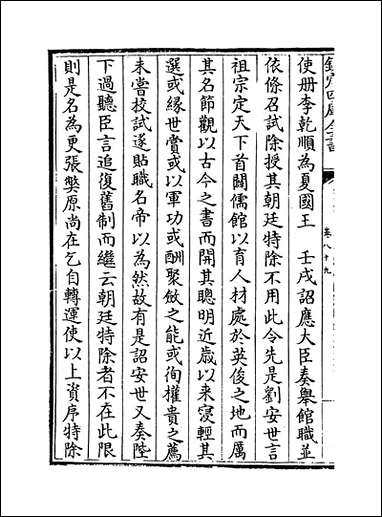 欽定四庫全書
卷八十九
使册李乾順為夏國王　壬戌詔應大臣奏舉館職並
依條召試除授其朝廷特除不用此令先是劉安世言
祖宗定天下首闢儒館以育人材處於英俊之地而厲
其名節觀以古今之書而開其聰明近歲以來寖輕其
選或縁世賞或以軍功或酬聚斂之能或徇權貴之薦
未嘗校試遂貼職名帝以為然故有是詔安世又奏陛
下過聽臣言追復舊制而繼云朝廷特除者不在此限
則是名為更張弊原尚在乞自轉運使以上資序特除